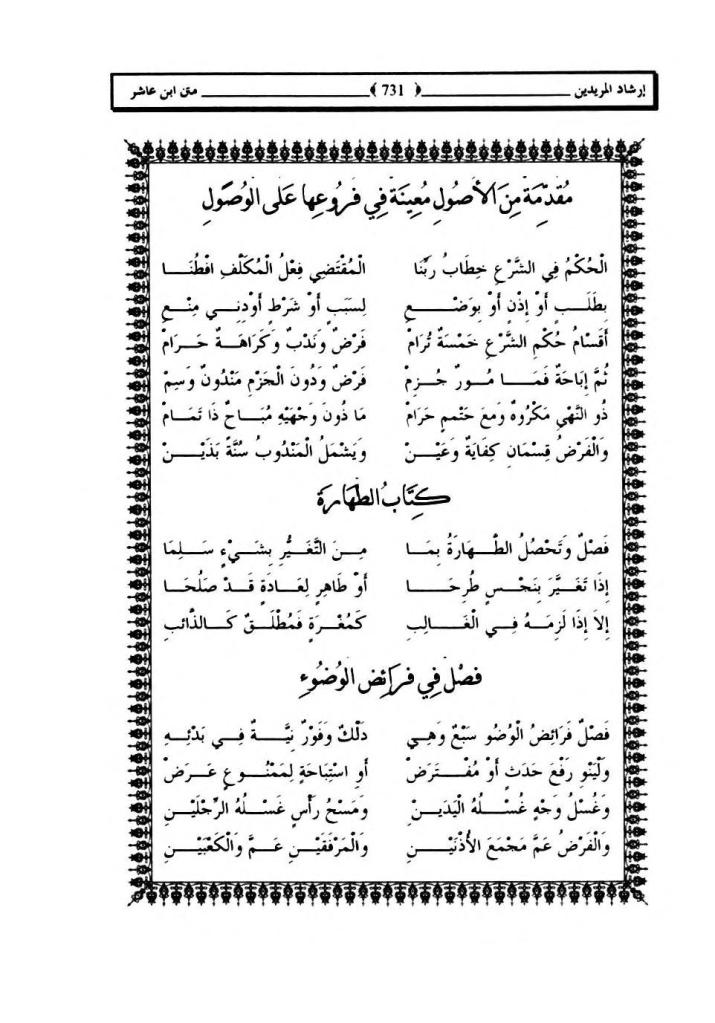 إرشاد المريدين ــــــــــ ﴿ 731 ﴾ ــــــــــ متن ابن عاشر
مُقَدِّمَة مِنَ الأُصُولِ مُعِينَة فِي فُرُوعِهَا عَلَى الوُصُولِ
الْحُكْمُ فِي الشَّرْعِ خِطَابُ رَبِّنَا الْمُقْتَضِي فِعْلُ الْمُكَلَّفِ افْطُنَا
بِطَلَبٍ أَوْ إِذْنٍ أَوْ بِوَضْعِ لِسَبَبٍ أَوْ شَرْطٍ أَوْدنِي مِنْعِ
أَقْسَامُ حُكْمِ الشَّرْعِ خَمْسَةٌ تُرَامْ فَرْضٌ وَنَدْبٌ وَكَرَاهَةٌ حَرَامْ
ثُمَّ إِبَاحَةٌ فَمَا مُورٌ جُزِمْ فَرْضٌ وَدُونَ الْحَزْمِ مَنْدُونٌ وَسِمْ
ذُو النَّهْيِ مَكْرُوهٌ وَمَعَ حَتْمٍ حَرَامْ مَا دُونَ وَجْهَيْهِ مُبَاحٌ ذَا تَمَامْ
وَالْفَرْضُ قِسْمَانِ كِفَايَةٌ وَعَيْنْ وَيَشْمَلُ الْمَنْدُوبُ سُنَّةً بَذَيْنْ
كِتَابُ الطَّهَارَة
فَصْلٌ وَتَحْصُلُ الطَّهَارَةُ بِمَا مِنَ التَّغَيُّرِ بِشَيْءٍ سَلِمَا
إِذَا تَغَيَّرَ بِنَجْسٍ طُرِحَا أَوْ طَاهِرٍ لِعَادَةٍ قَدْ صَلُحَا
إِلاَ إِذَا لَزِمَهُ فِي الْغَالِبِ كَمُغْرَةٍ فَمُطْلَقٌ كَالذَّائِبِ
فَصْل فِي فَرَائِضِ الوُضُوءِ
فَصْلٌ فَرَائِضُ الْوُضُو سَبْعٌ وَهِي دَلْكٌ وَفَوْرٌ نِيَّةٌ فِي بَدْئِهِ
وَلْيَنْوِ رَفْعَ حَدَثٍ أَوْ مُفْتَرَضْ أَوِ اسْتِبَاحَةً لِمَمْنُوعٍ عَرَضْ
وَغُسْلُ وَجْهٍ غُسْلُهُ الْيَدَيْنِ وَمَسْحُ رَأْسٍ غَسْلُهُ الرِّجْلَيْنِ
وَالْفَرْضُ عَمَّ مَجْمَعَ الأُذُنَيْنِ وَالْمَرْفَقَيْنِ عَمَّ وَالْكَعْبَيْنِ